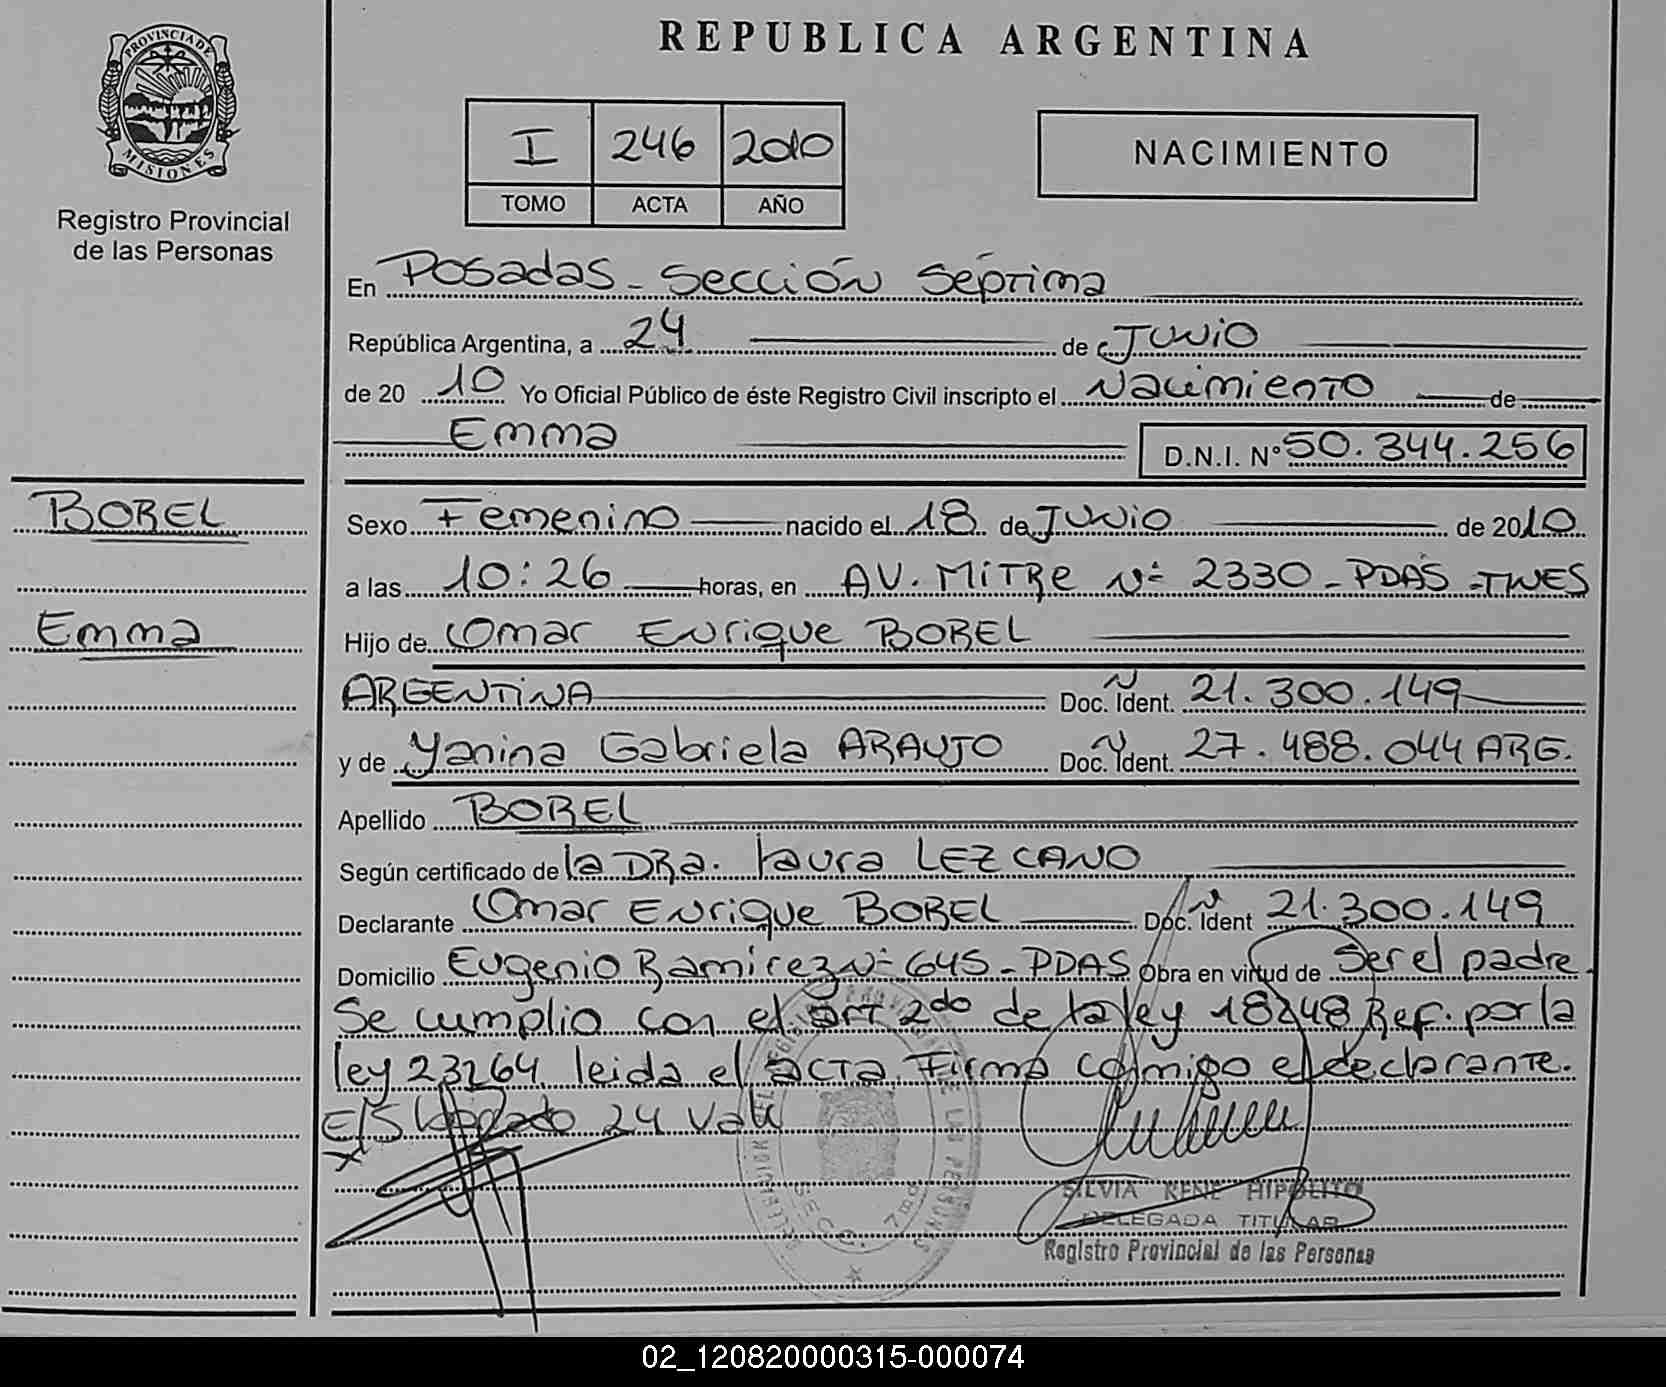 REPUBLICA ARGENTINA
PROVINCIA DE
MISIONES
Registro Provincial
de las Personas
I 246 2010
TOMO ACTA AÑO
NACIMIENTO
En Posadas - Sección Séptima
República Argentina, a 24 de Junio
de 20 10 Yo Oficial Público de éste Registro Civil inscripto el Nacimiento de
Emma D.N.I. N° 50.344.256
BOREL
Emma
Sexo Femenino nacido el 18 de Junio de 2010
a las 10:26 horas, en AV. MITRE Nº 2330 - PDAS - TNES
Hijo de Omar Enrique BOREL
ARGENTINA Doc. Ident. 21.300.149
y de Yanina Gabriela ARAUJO Doc. Ident. 27.488.044 ARG.
Apellido BOREL
Según certificado de la DRA. Laura LEZCANO
Declarante Omar Enrique BOREL Doc. Ident 21.300.149
Domicilio Eugenio Ramirez Nº 645 - PDAS Obra en virtud de Ser el padre.
Se cumplio con el art 2do de la ley 18248 Ref. por la
ley 23264 leida el acta Firma conmigo el declarante.
E/S 24 Vale
SECC. 7ma
SILVIA RENE HIPOLITO
DELEGADA TITULAR
Registro Provincial de las Personas
02_120820000315-000074